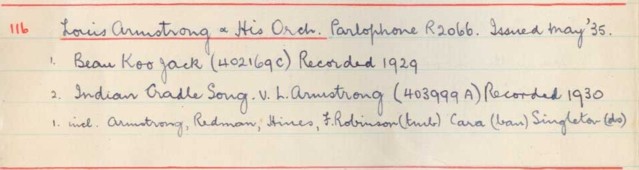 116 Louis Armstrong & His Orch. Parlophone R2066. Issued May '35.
1. Beau Koo Jack (402169C) Recorded 1929
2. Indian Cradle Song. V. L. Armstrong (403999A) Recorded 1930
1. incl. Armstrong, Redman, Hines, F. Robinson (tmb) Cara (ban) Singleton (ds)